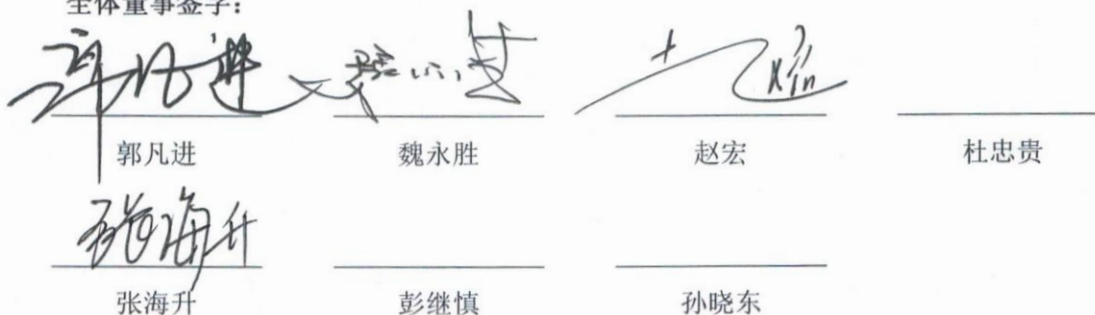 全体董事签字：
郭凡进 魏永胜 赵宏 杜忠贵
张海升
张海升 彭继慎 孙晓东